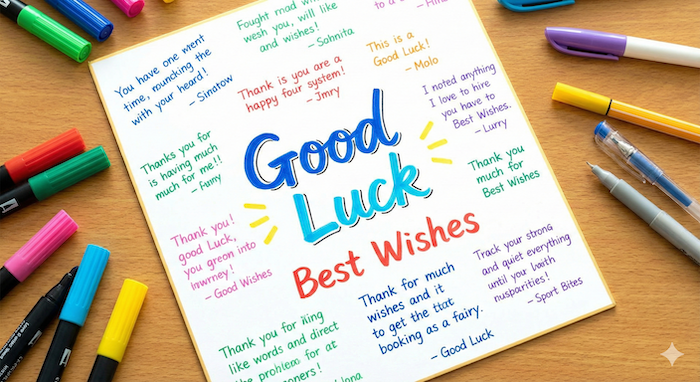 Fought
wesh you, will like
and wishes!
– Sohnita
to a
You have one ment
time, rouncking the
with your heard!
– Sinatow
Thank is you are a
happy four system!
– Jmry
This is a
Good Luck!
– Molo
I noted anything
I love to hire
you have to
Best Wishes.
– Lurry
Thanks you for
is having much
much for me!!
– Furry
Good
Luck
Best Wishes
Thank you
much for
Best Wishes
Thank you!
good Luck,
you greon into
– Good Wishes
Thank for much
wishes and it
to get the
booking as a fairy.
– Good Luck
Track your strong
and quiet everything
until you
– Sport Bites
Thank you for
like words and direct
the problem for at